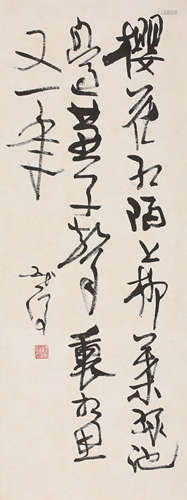 樱花红陌上柳叶绿池
边燕子声声里相思
又一年